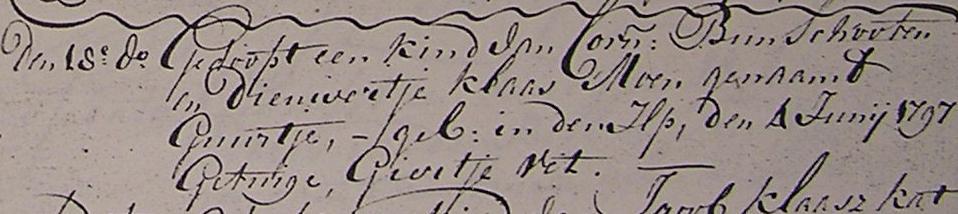 Den 18e. do. Gedoopt een kind van Corn: Bunschooten
en Dieuwertje Klaas Moen genaamt
Guurtje, - geb: in den Ilp, den 4 Junij 1797
Getuige, Giertje Vet.
Jacob Klaasz kat